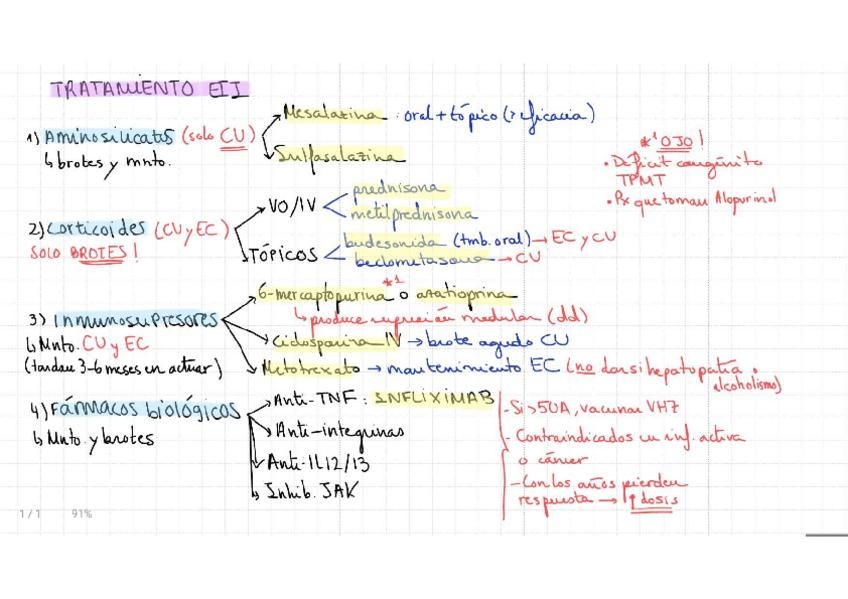 TRATAMIENTO EII
1) Aminosilicatos (solo CU)
↳ brotes y mnto.
Mesalazina : oral + tópico (> eficacia)
Sulfasalazina
*¹ OJO !
• Déficit congénito
TPMT
• Px que toman Alopurinol
2) Corticoides (CU y EC)
SOLO BROTES !
VO/IV
prednisona
metilprednisona
TÓPICOS
budesonida (tmb. oral) → EC y CU
beclometasona → CU
3) Inmunosupresores
↳ Mnto. CU y EC
(tardan 3-6 meses en actuar)
6-mercaptopurina *¹ o azatioprina
↳ produce supresión medular (dd)
Ciclosporina IV → brote agudo CU
Metotrexato → mantenimiento EC (no dar si hepatopatía o
alcoholismo)
4) Fármacos biológicos
↳ Mnto. y brotes
Anti-TNF : INFLIXIMAB
Anti-integrinas
Anti-IL12/13
Inhib. JAK
- Si >50A, vacunar VHZ
- Contraindicados en inf. activa
o cáncer
- Con los años pierden
respuesta → ↑ dosis
1 / 1 91%